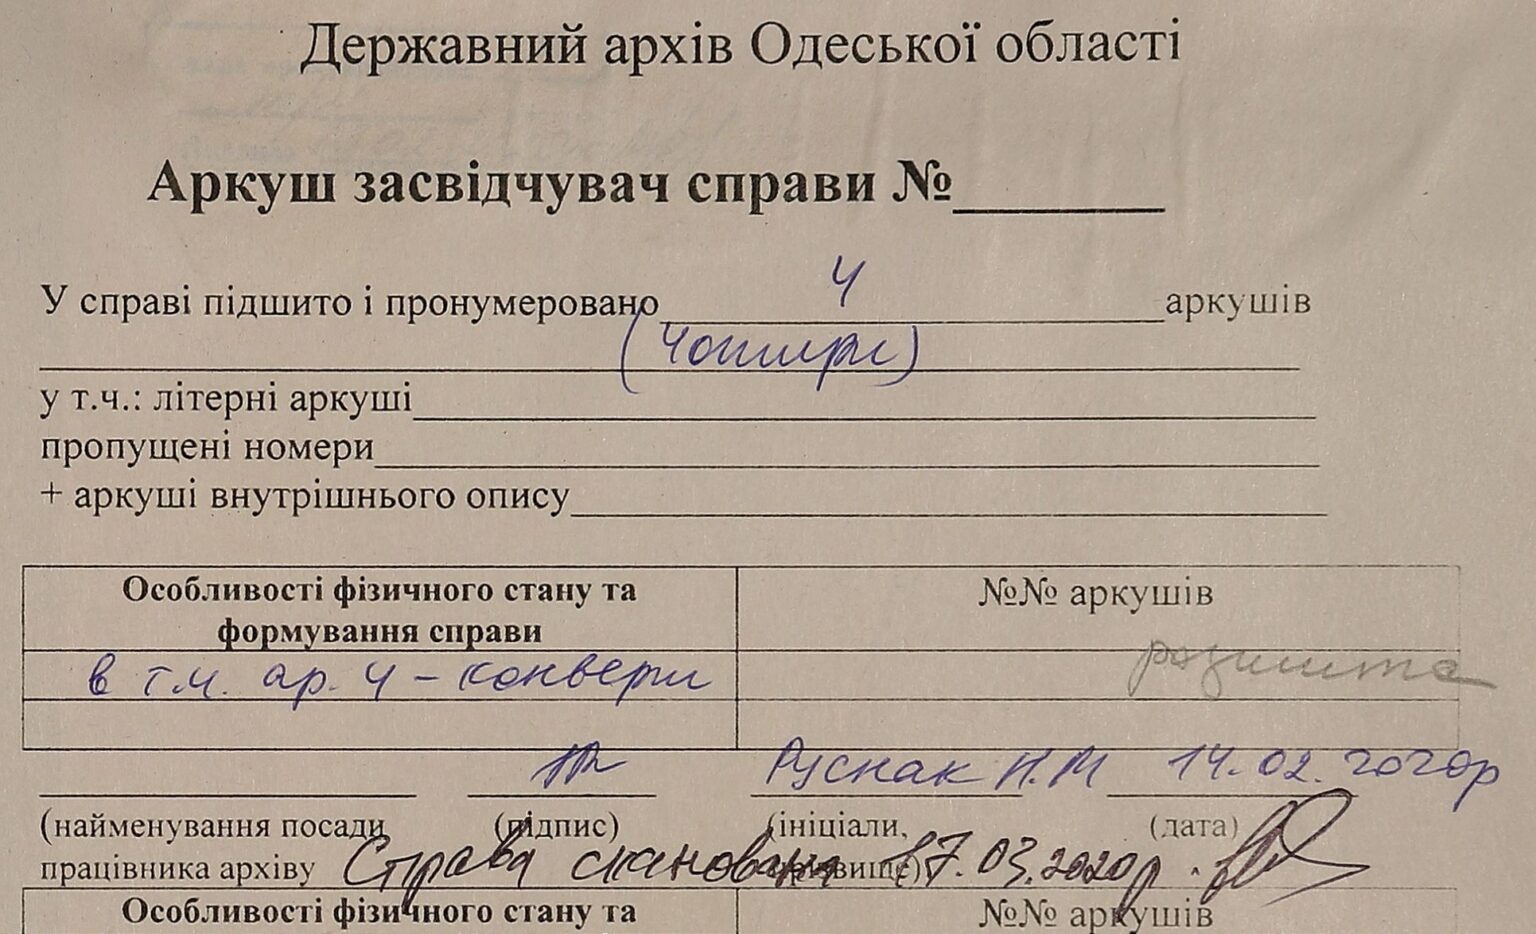 Державний архів Одеської області
Аркуш засвідчувач справи №
У справі підшито і пронумеровано 4 аркушів
(чотири)
у т.ч.: літерні аркуші
пропущені номери
+ аркуші внутрішнього опису
Особливості фізичного стану та формування справи
№№ аркушів
в т.ч. ар. 4 – конверти
розшита
Руснак Н.М 14.02.2020р
(найменування посади працівника архіву
(підпис)
(ініціали, прізвище)
(дата)
Справа сканована 17.03.2020р.
Особливості фізичного стану та
№№ аркушів